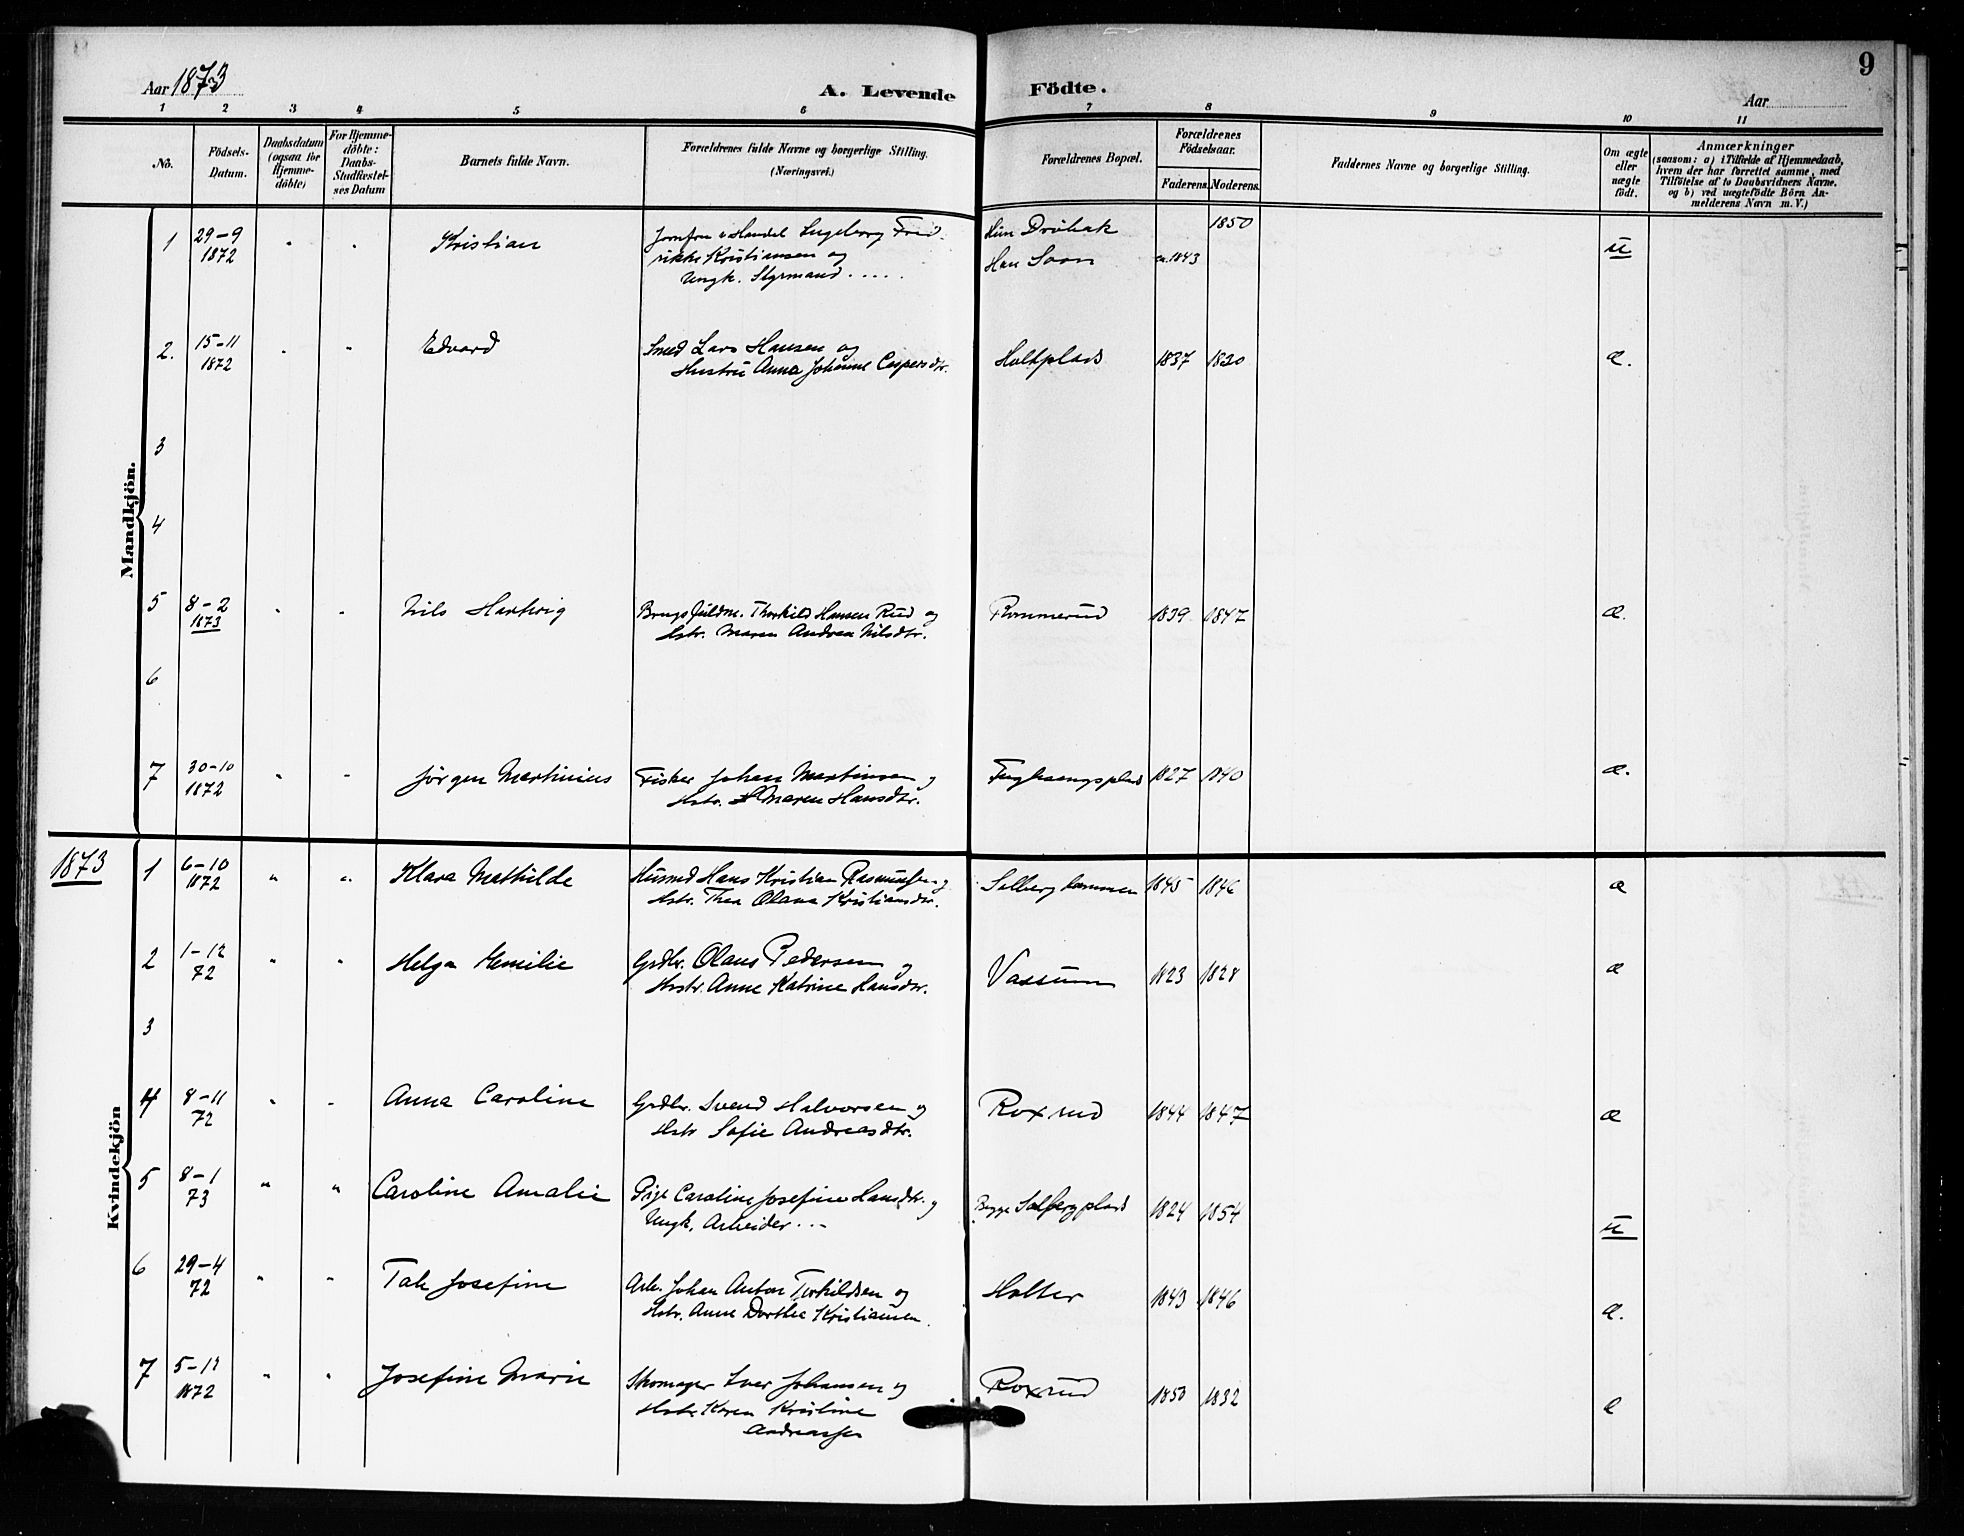 9
Aar 1873
A. Levende Födte.
Aar
1 2 3 4 5 6 7 8 9 10 11
No.
Födsels-Datum.
Daabsdatum (ogsaa for Hjemme-döbte)
For Hjemme-döbte: Daabs-Stadfæstel-ses Datum
Barnets fulde Navn.
Forældrenes fulde Navne og borgerlige Stilling.
(Næringsvei.)
Forældrenes Bopæl.
Forældrenes Födselsaar.
Faderens. Moderens.
Faddernes Navne og borgerlige Stilling.
Om ægte eller uægte födt.
Anmærkninger
(saasom: a) i Tilfælde af Hjemmedaab,
hvem der har forrettet samme, med
Tilföielse af to Daabsvidners Navne.
og b) ved uægtefödte Börn An-
melderens Navn m. V.)
Mandkjön.
1 29-9 1872 " " Kristian
Jomfru i Handel Ingeborg Fred-
rikke Kristiansen og
Ungk. Styrmand .....
Hun Dröbak 1850
Han Soon ca. 1843
u
2. 15-11 1872 " " Edvard
Smed Lars Hansen og
Hustru Anna Johanne Caspersdtr.
Holtplads 1837 1830 æ.
3
4
5 8-2 1873 " " Nils Hartvig
Brugsfuldm. Thorkild Hansen Rud og
Hstr. Maren Andrea Nilsdtr.
Rommerud 1839 1847 æ.
6
7 30-10 1872 " " Jörgen Martinius
Fisker Johan Martinsen og
Hstr. Maren Hansdtr.
1827 1840 æ.
1873
Kvindekjön
1 6-10 1872 " " Klara Mathilde
Husmd Hans Kristian Rasmussen og
Hstr. Thea Olava Kristiansdtr.
1845 1846 æ
2 1-12 72 " " Helga Emilie
Grdbr. Olaus Pedersen og
Hstr. Anne Katrine Hansdtr.
Vassum 1823 1828 æ
3
4 8-11 72 " " Anna Caroline
Grdbr. Svend Halvorsen og
Hstr Sofie Andreasdtr.
Roxrud 1844 1847 æ
5 8-1 73 " " Caroline Amalie
Pige Caroline Josefine Hansdtr. og
Ungk. Arbeider ...
Begge Solbergplads 1824 1854 u
6 29-4 72 " " Josefine
Arb. Johan Anton Torkildsen og
Hstr. Anne Dorthea Kristiansen.
Holter 1843 1846 æ.
7 5-12 1872 " " Josefine Marie
Skomager Iver Johansen og
Hstr. Karen Kristine
Roxrud 1850 1832 æ